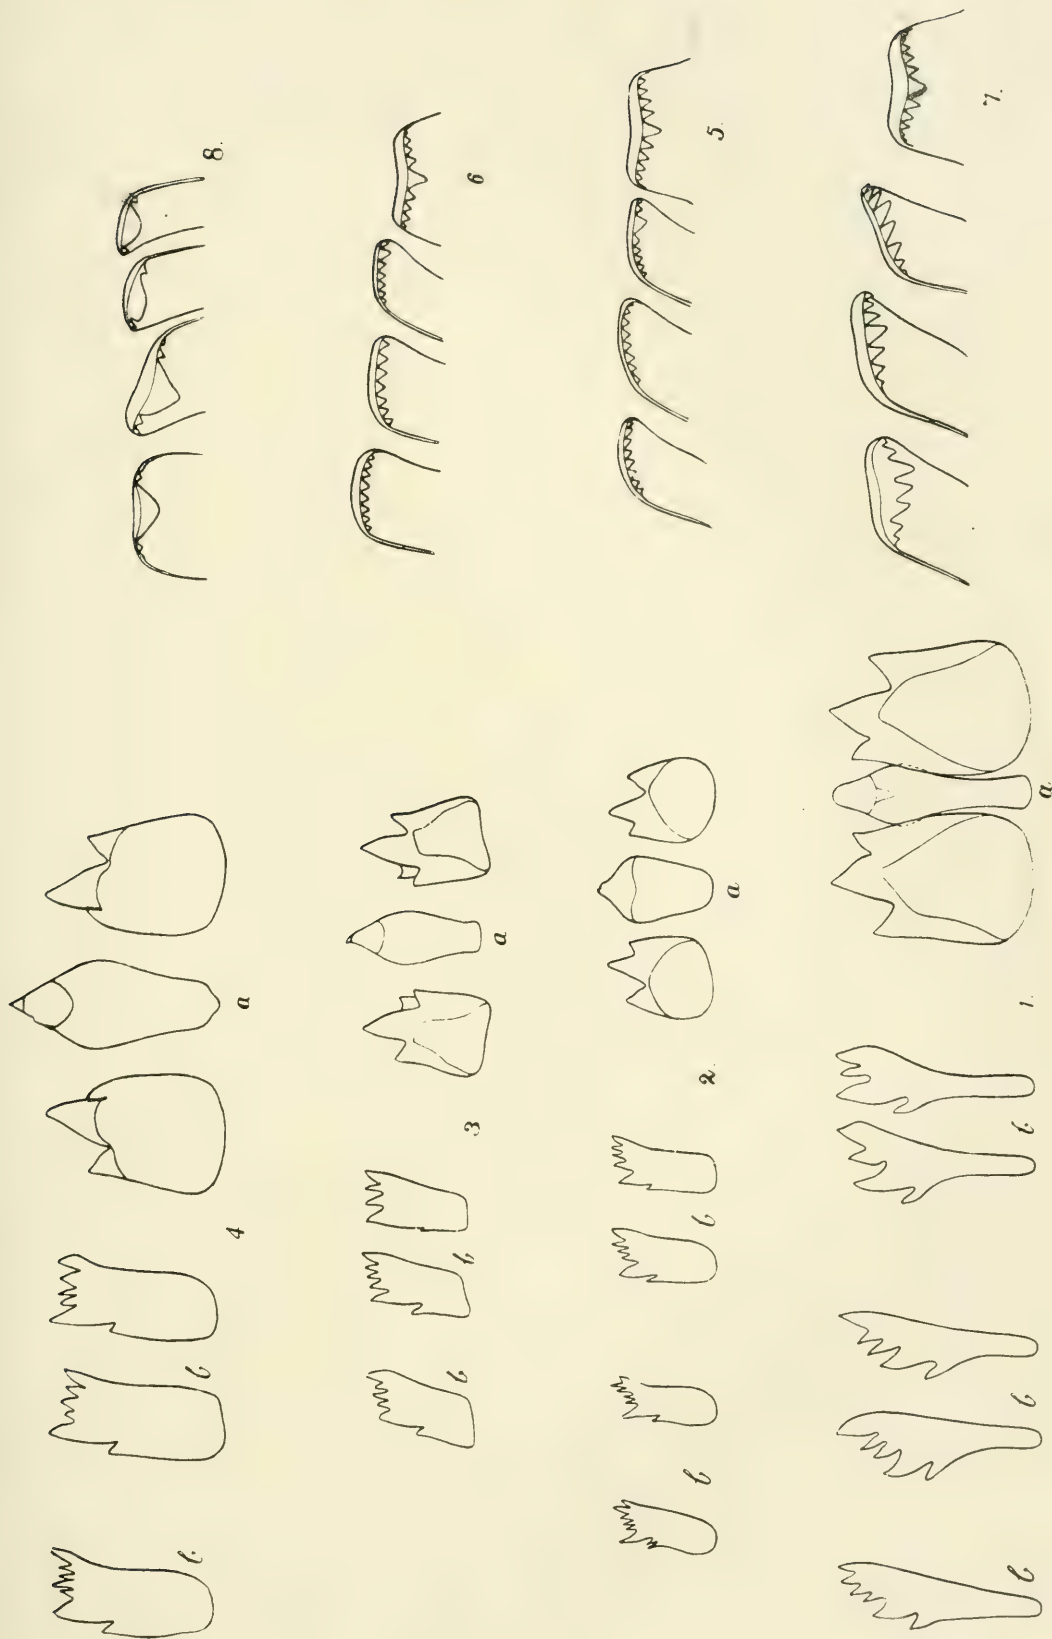 8.
6
5.
7.
a
4
b
b
a
3
b
b
a
2
b
b
a
1.
b
b
b